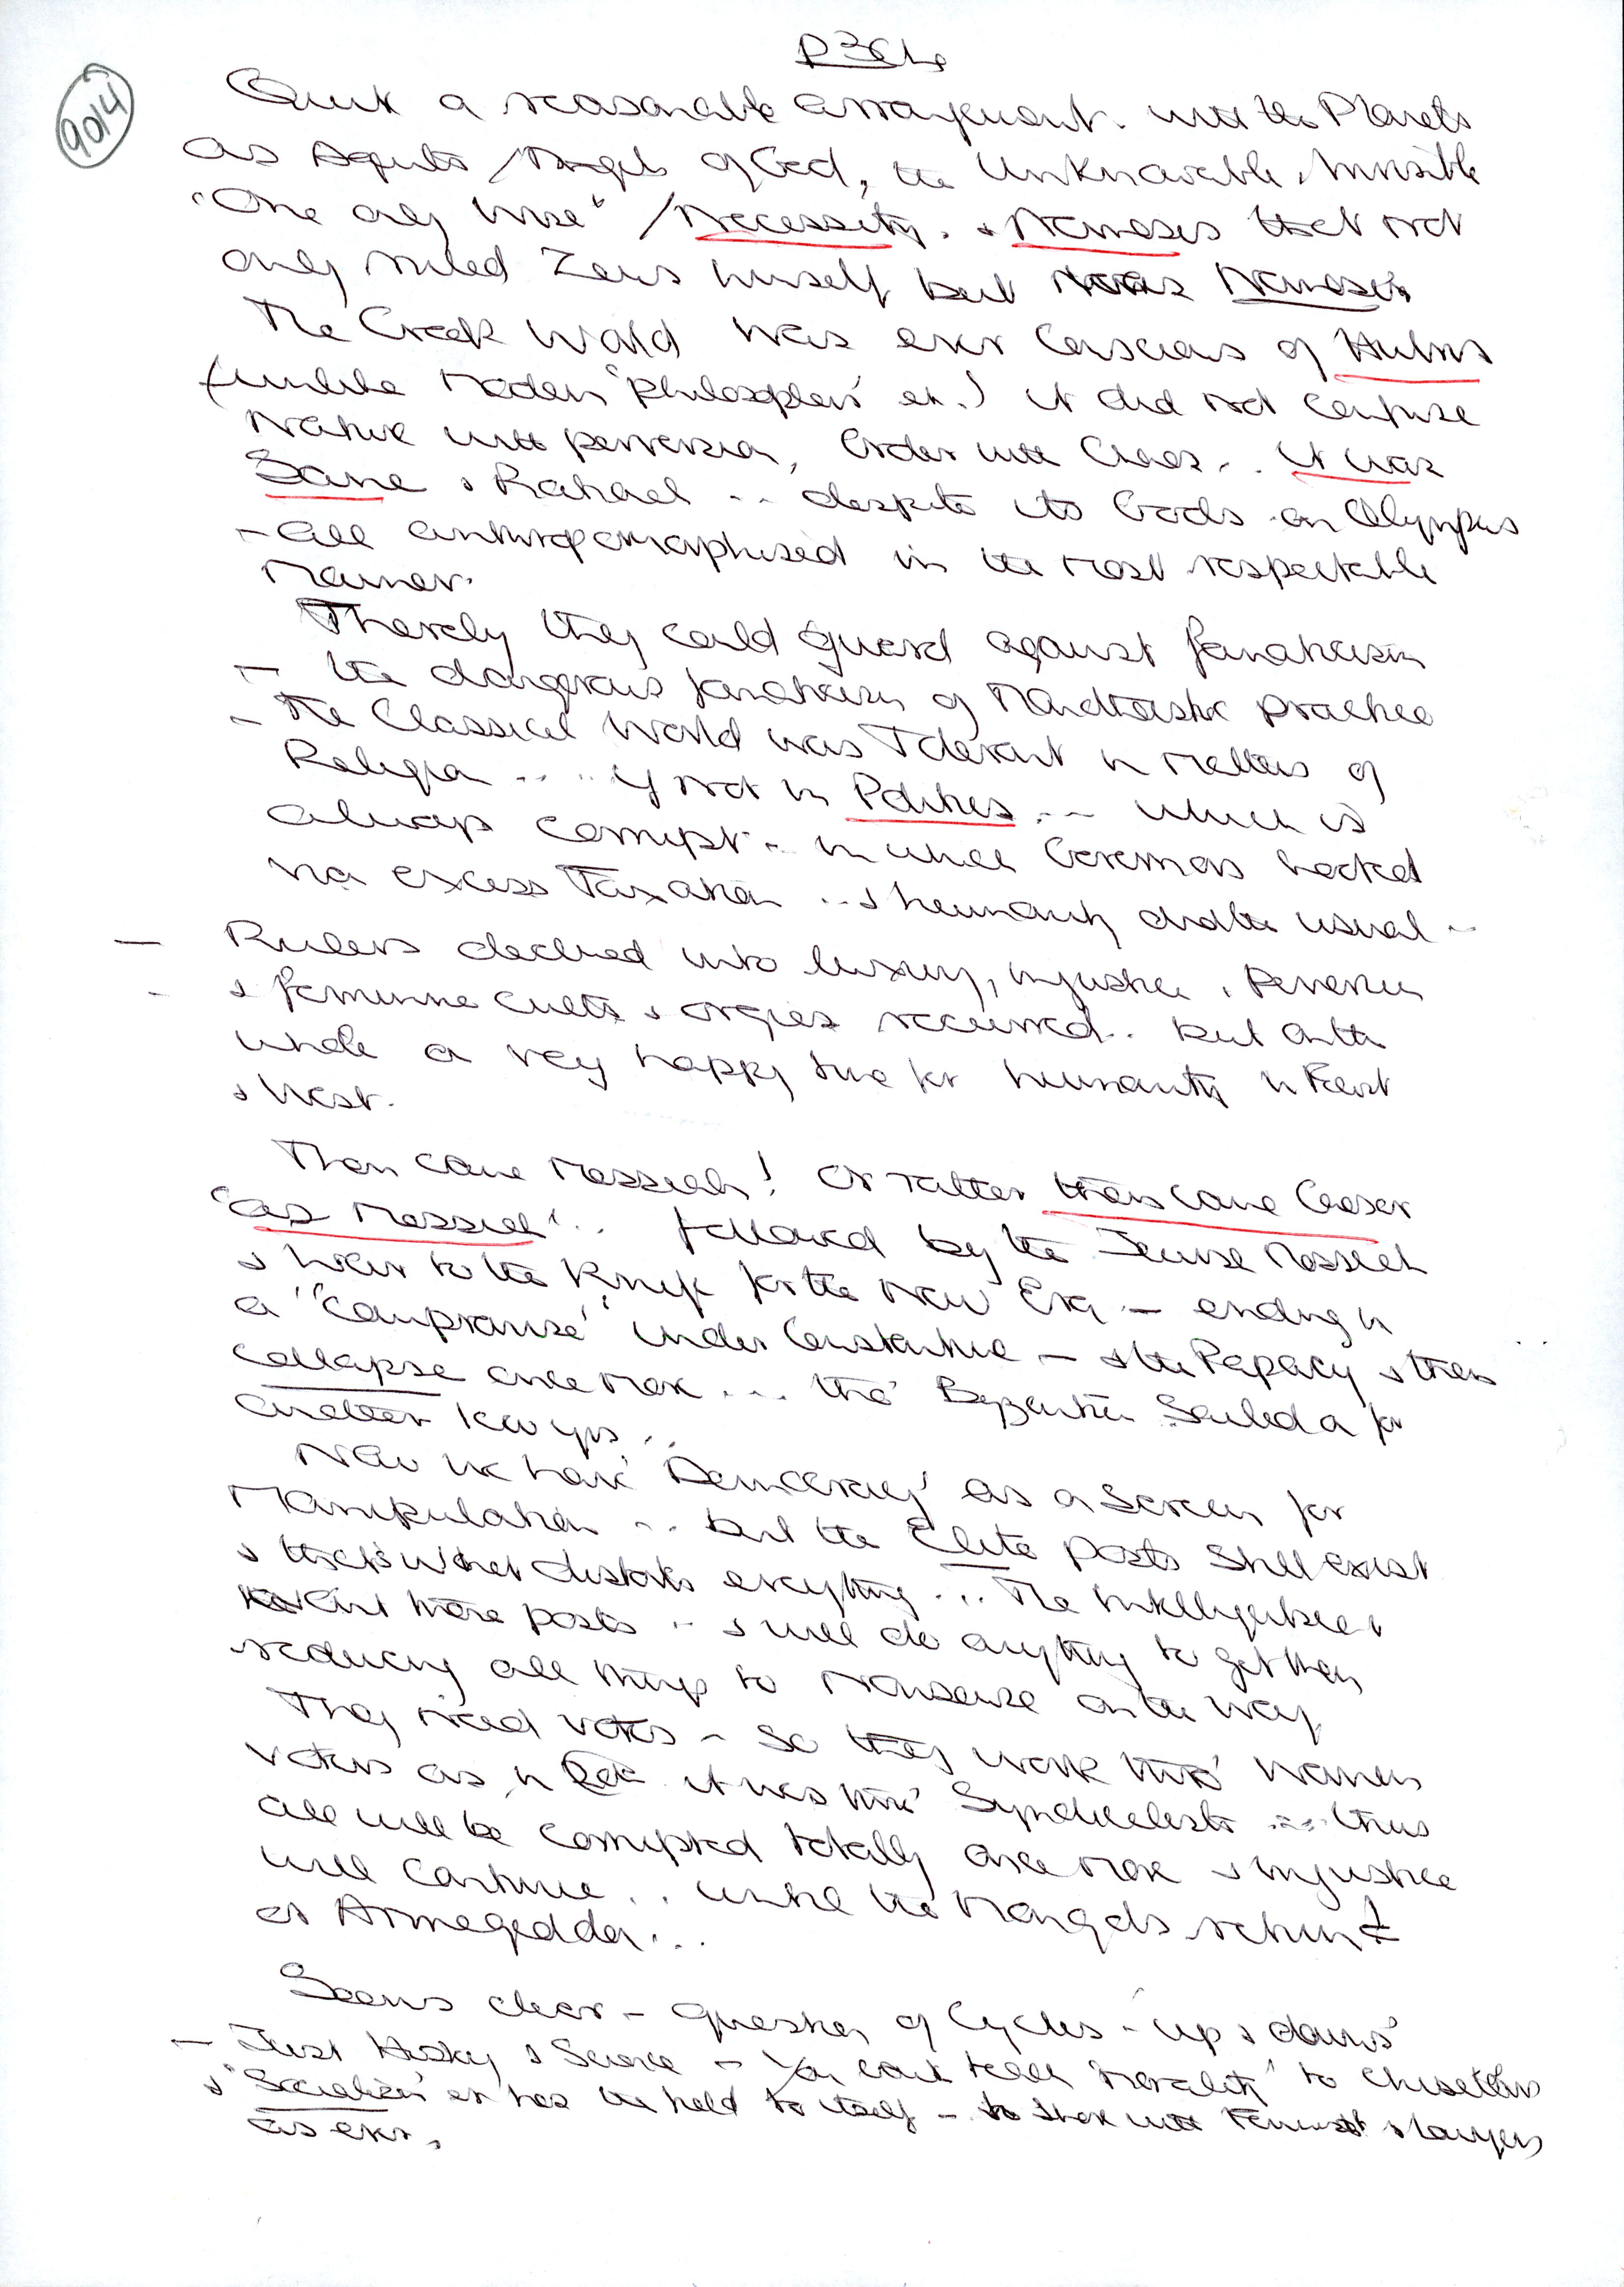 9014
Quite a reasonable arrangement. with the Planets
as Agents / Angels of God, the Unknowable, Invisible
"One only wise" / Necessity. & Nemesis that not
only ruled Zeus himself but was Nemesis
The Greek World was ever conscious of Hubris
(unlike modern 'philosophers' etc.) it did not confuse
Nature with perversion, Order with Chaos.. it was
Sane & Rational .. despite its Gods on Olympus
- all anthropomorphised in the most respectable
manner.
Thereby they could guard against fanaticism
- the dangerous fanaticism of practice
- The Classical World was Tolerant in matters of
Religion .... if not in Politics ... which is
always corrupt .. in which Governors
via excess Taxation .. & humanity did the usual ..
- Rulers declined into luxury, injustice, perversion
- & feminine cults & orgies recurred.. but on the
whole a very happy time for humanity in East
& West.
Then came Messiah! Or rather there came Caesar
'as Messiah'.. followed by the Messiah
& war to the knife for the New Era - ending in
a "Compromise" under Constantine - & the Papacy & then
collapse once more ... tho' Byzantium for
another 1000 yrs ..
Now we have 'Democracy' as a Screen for
Manipulation ... but the Elite posts still exist
& that's what distorts everything ... The Intelligentsia
want those posts .. & will do anything to get them
reducing all things to nonsense on the way
They need votes - so they work thro' women
voters as in it was thro' Syndicalists .... thus
all will be corrupted totally once more & injustice
will continue .. until the Mongols return
at Armegeddon...
Seems clear - question of Cycles - 'up & downs'
- Just History & Science - You can't teach 'morality' to
& 'Socialism' etc has to itself - to with Feminists & lawyers
as ever.